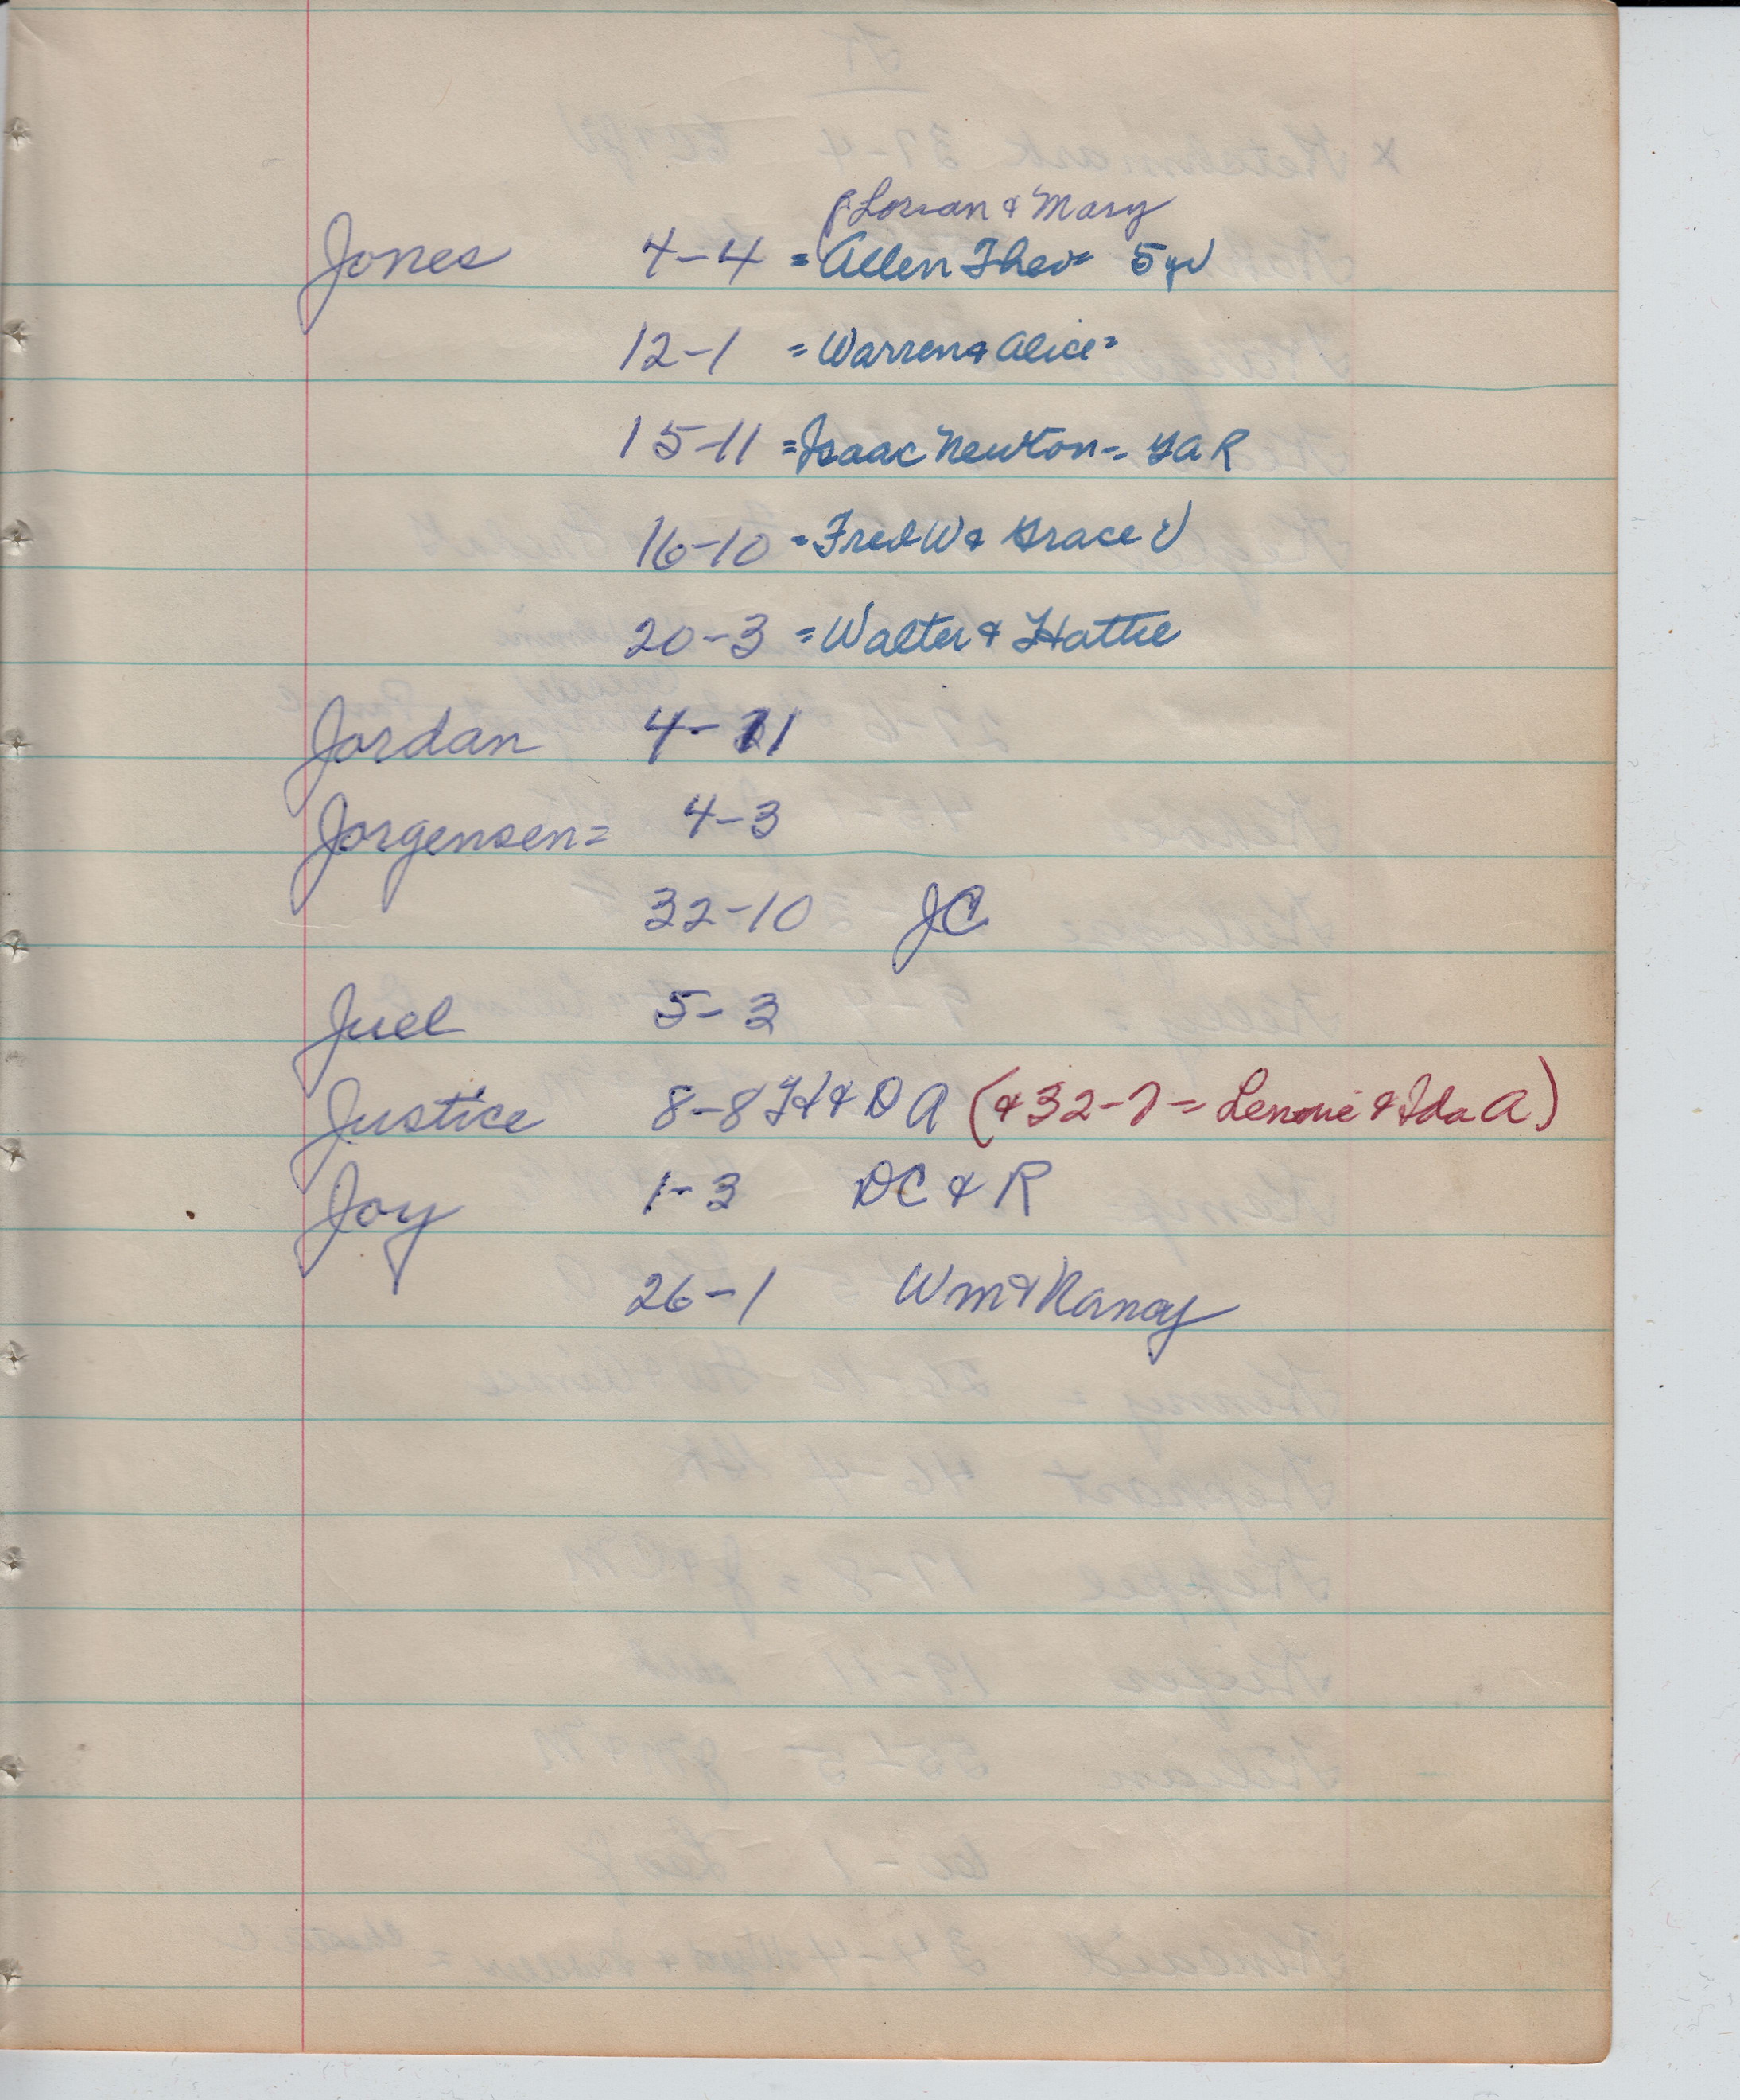 (Lorian & Mary
Jones 4-4 = Allen Theo= 5 yr
12-1 = Warren & Alice=
15-11 = Isaac Newton-= GAR
16-10 = Fred W & Grace V
20-3 = Walter & Hattie
Jordan 4-11
Jorgensen= 4-3
32-10 JC
Juel 5-3
Justice 8-8 H & D A (& 32-7 = Lennie & Ida A)
Joy 1-3 DC & R
26-1 Wm & Nancy